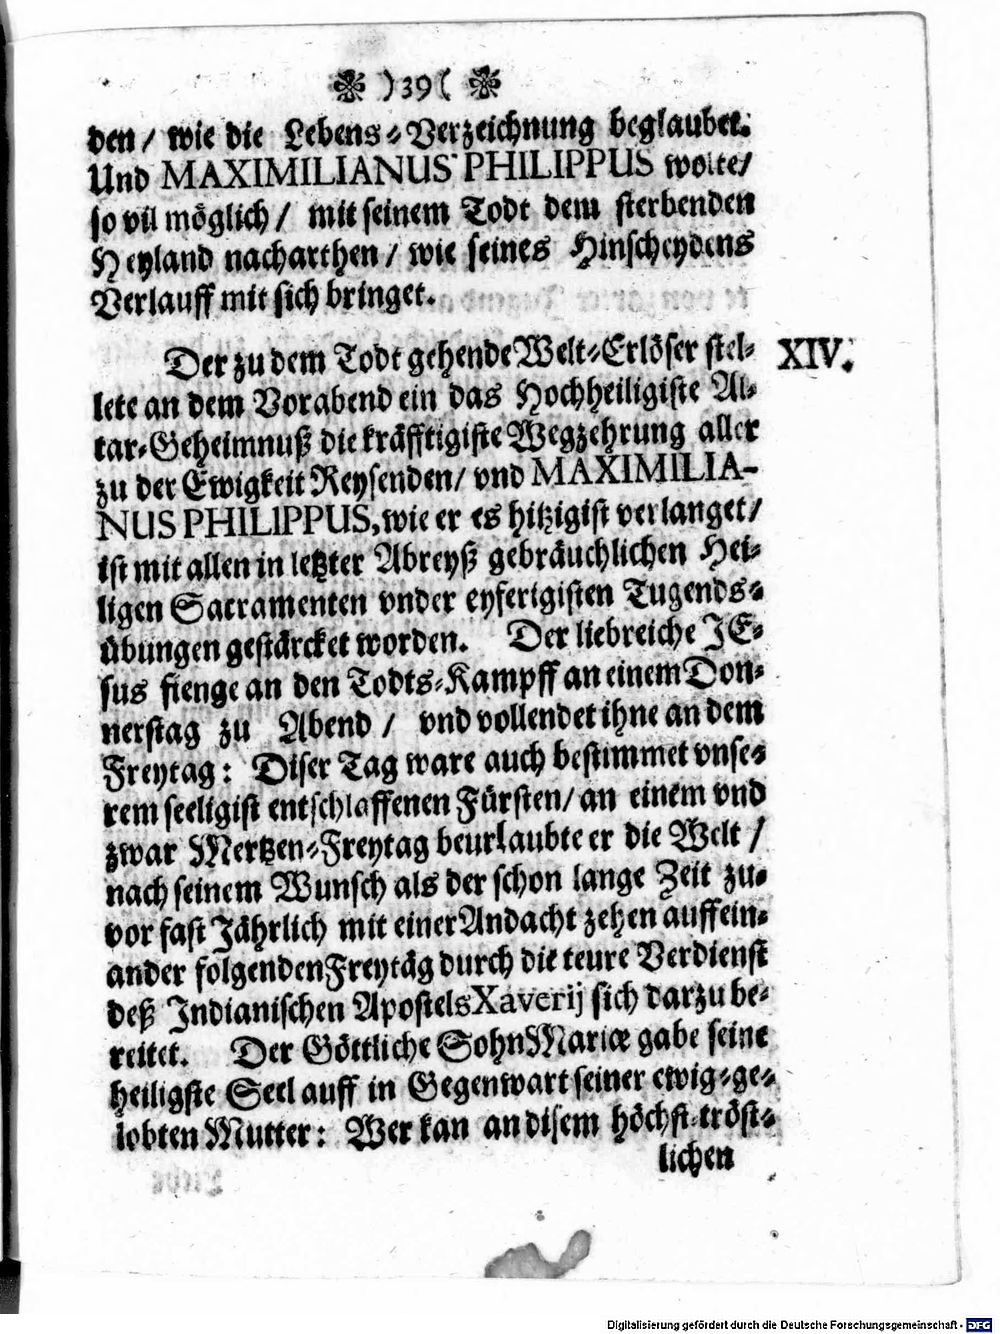 ❀ )39( ❀
den / wie die Lebens-Verzeichnung beglaubet.
Und MAXIMILIANUS PHILIPPUS wolte/
so vil möglich / mit seinem Todt dem sterbenden
Heyland nacharthen / wie seines Hinscheydens
Verlauff mit sich bringet.
Der zu dem Todt gehende Welt-Erlöser stel- XIV.
lete an dem Vorabend ein das Hochheiligiste Al-
tar-Geheimnuß die kräfftigiste Wegzehrung aller
zu der Ewigkeit Reysenden/ vnd MAXIMILIA-
NUS PHILIPPUS, wie er es hitzigist verlanget/
ist mit allen in letzter Abreyß gebräuchlichen Hei-
ligen Sacramenten vnder eyferigisten Tugends-
übungen gestärcket worden. Der liebreiche JE-
sus fienge an den Todts-Kampff an einem Don-
nerstag zu Abend / vnd vollendet ihne an dem
Freytag: Diser Tag ware auch bestimmet vnse-
rem seeligist entschlaffenen Fürsten/ an einem vnd
zwar Mertzen-Freytag beurlaubte er die Welt /
nach seinem Wunsch als der schon lange Zeit zu-
vor fast Jährlich mit einer Andacht zehen auffein-
ander folgenden Freytäg durch die teure Verdienst
deß Indianischen Apostels Xaverij sich darzu be-
reitet. Der Göttliche Sohn Mariæ gabe seine
heiligste Seel auff in Gegenwart seiner ewig-ge-
lobten Mutter: Wer kan an disem höchst-tröst-
lichen
Digitalisierung gefördert durch die Deutsche Forschungsgemeinschaft - DFG